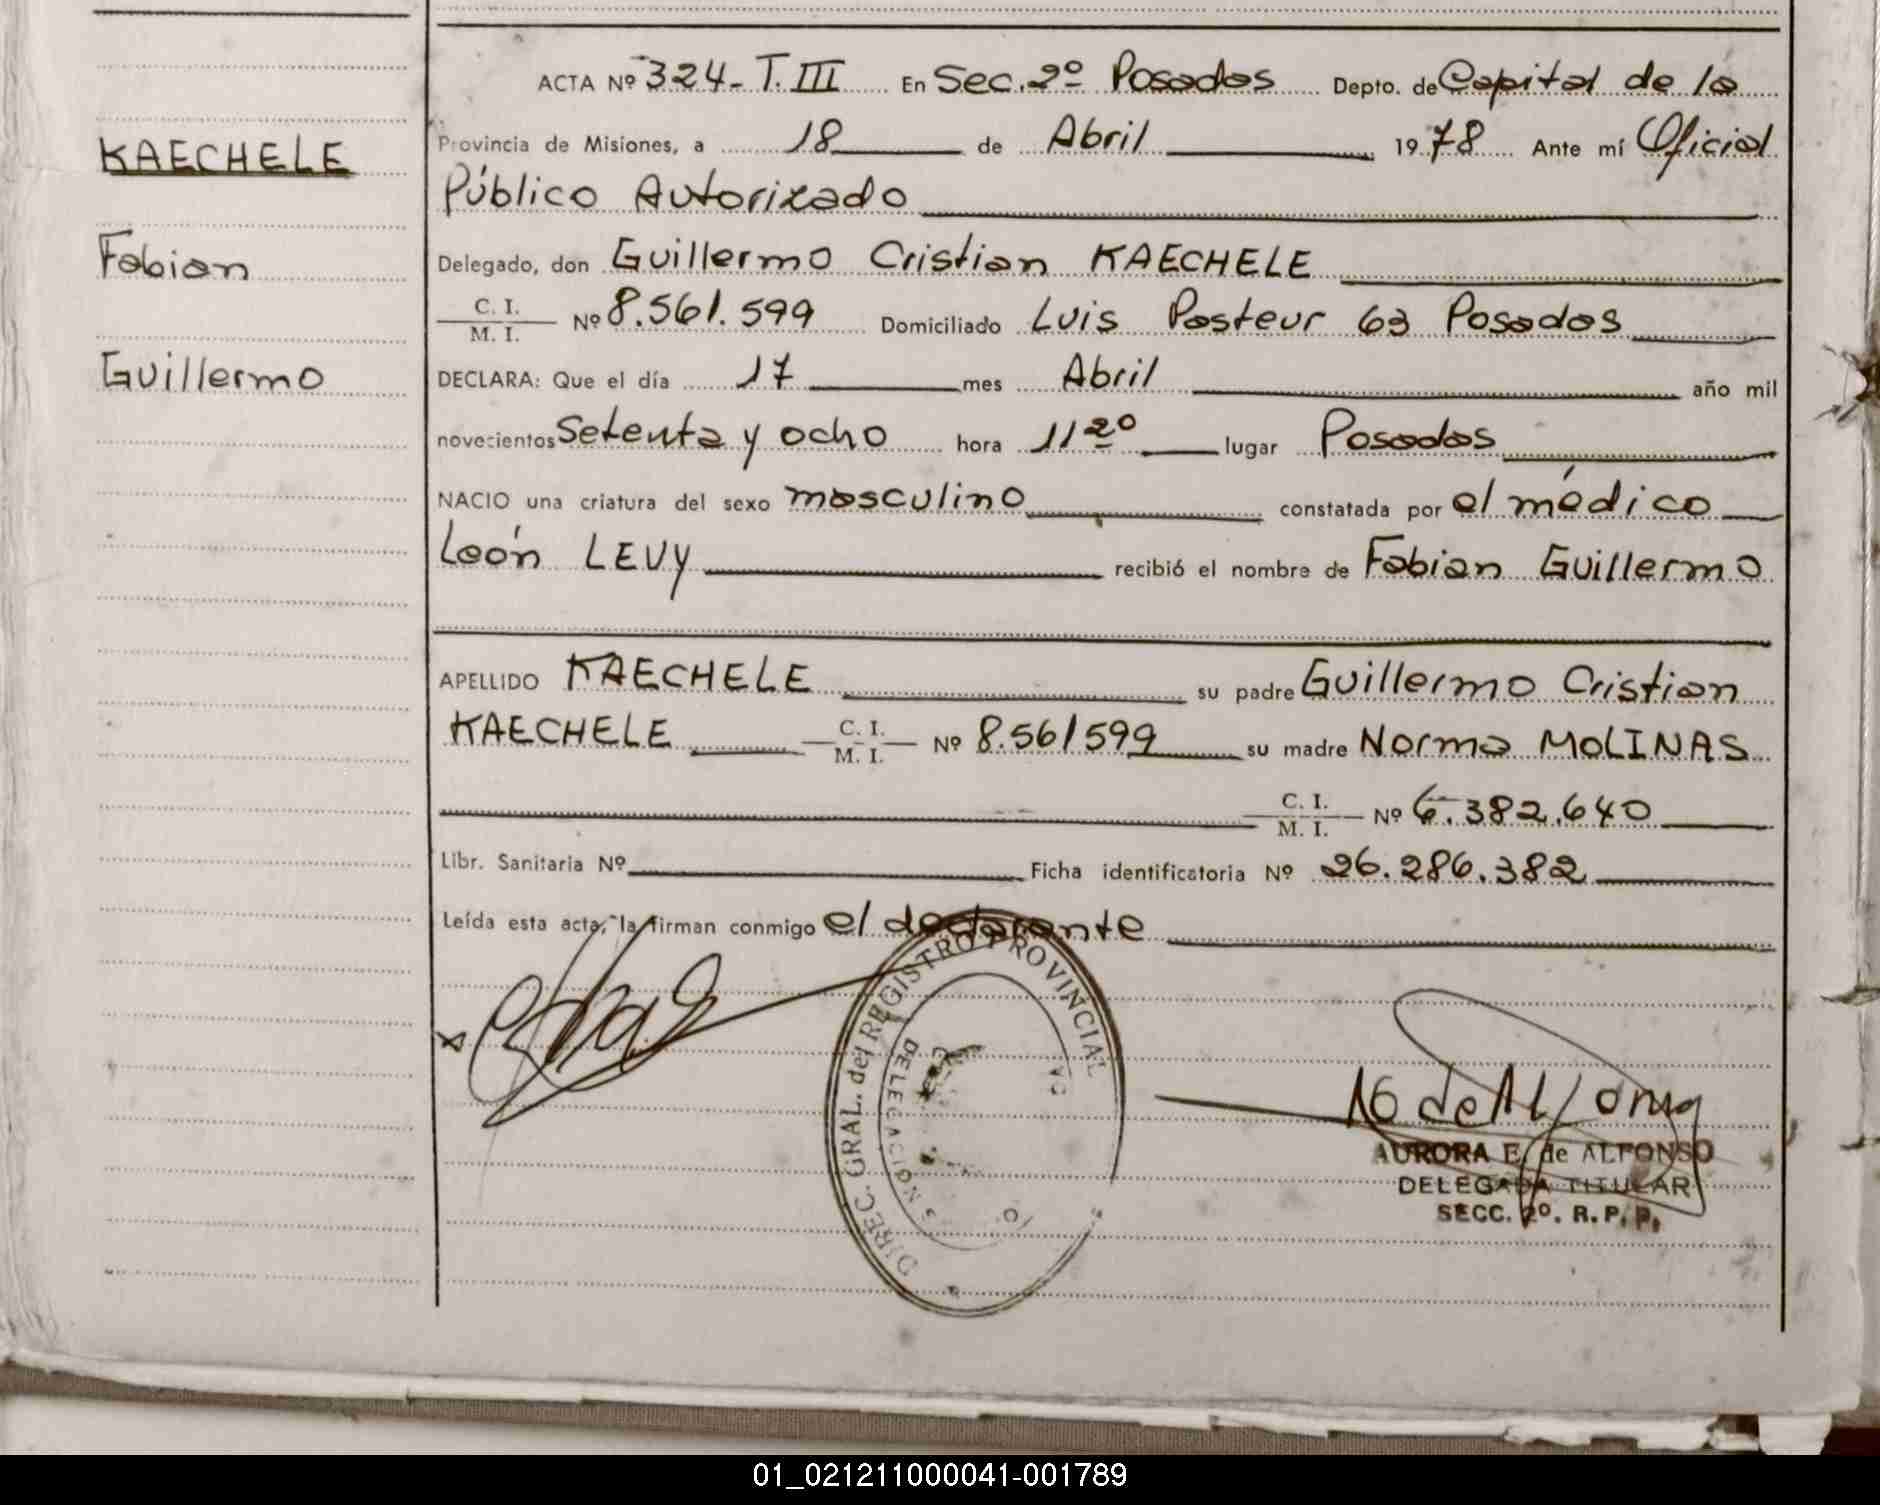 KAECHELE
Fabian
Guillermo
ACTA Nº 324-T.III En Sec.2º Posadas Depto. de Capital de la
Provincia de Misiones, a 18 de Abril 1978 Ante mí Oficial
Público Autorizado
Delegado, don Guillermo Cristian KAECHELE
C. I.
M. I. Nº 8.561.599 Domiciliado Luis Pasteur 63 Posadas
DECLARA: Que el día 17 mes Abril año mil
novecientos Setenta y ocho hora 11 20 lugar Posadas
NACIO una criatura del sexo masculino constatada por el médico
León LEVY recibió el nombre de Fabian Guillermo
APELLIDO KAECHELE su padre Guillermo Cristian
KAECHELE C. I. M. I. Nº 8.561599 su madre Norma MOLINAS
C. I. M. I. Nº 6.382.640
Libr. Sanitaria Nº Ficha identificatoria Nº 26.286.382
Leída esta acta, la firman conmigo el declarante
DIREC. GRAL. del REGISTRO PROVINCIAL
DELEGACION
AURORA E. de ALFONSO
DELEGADA TITULAR
SECC. 2º. R. P. P.
01_021211000041-001789